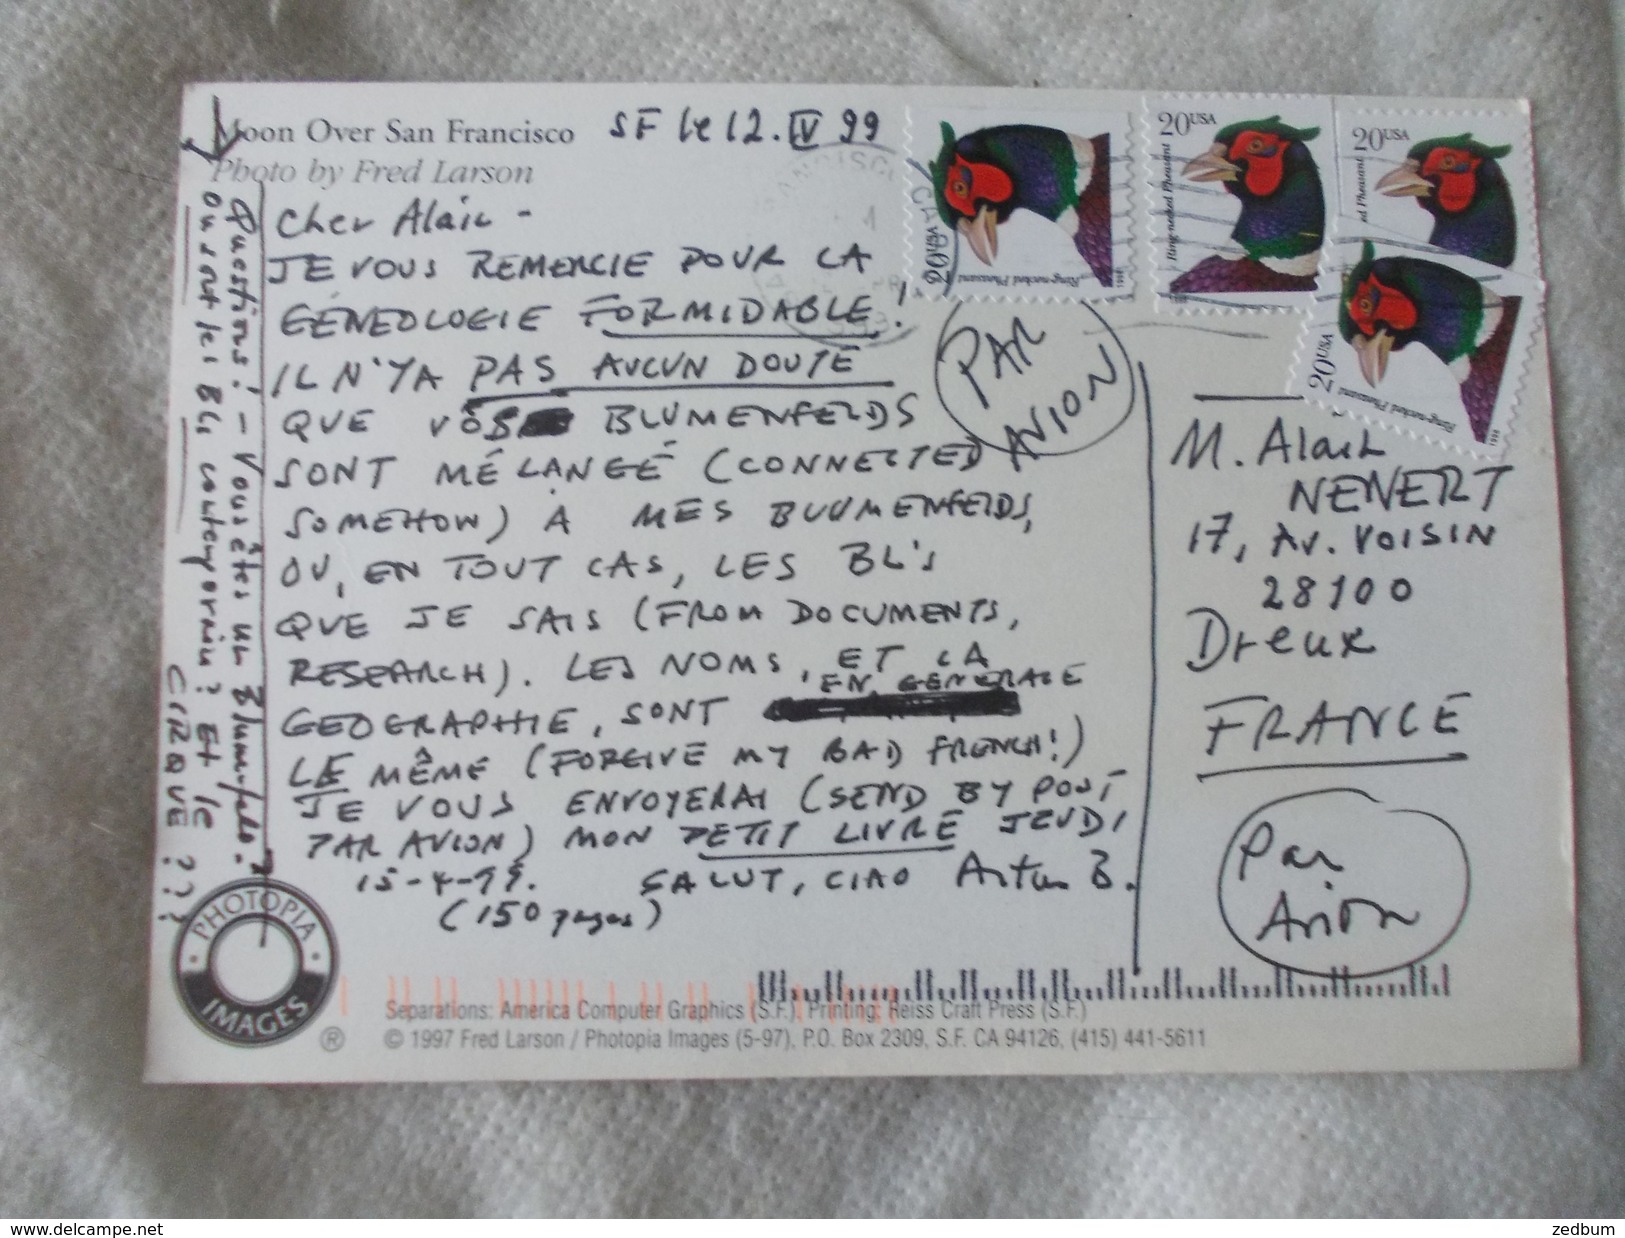 Moon Over San Francisco
Photo by Fred Larson
SF le 12. IV 99
Cher Alain -
JE VOUS REMERCIE POUR LA
GÉNEOLOGIE FORMIDABLE!
IL N'YA PAS AUCUN DOUTE
QUE VOS BLUMENFELDS
SONT MÉLANGÉ (CONNECTED
SOMEHOW) A MES BLUMENFELDS,
OU, EN TOUT CAS, LES BL'S
QUE JE SAIS (FROM DOCUMENTS,
RESEARCH). LES NOMS, ET LA
GEOGRAPHIE, SONT, EN GENERALE
LE MÊME (FORGIVE MY BAD FRENCH!)
JE VOUS ENVOYERAI (SEND BY POST
PAR AVION) MON PETIT LIVRE JEUDI
15-4-99. SALUT, CIAO Artur B.
(150 pages)
Questions: - Vous êtes un Blumenfeld?
Ou sont les Bl's contemporain? Et le
CIRQUE???
PAR
AVION
M. Alain
NENERT
17, Av. VOISIN
28100
Dreux
FRANCE
Par
Avion
20USA
Ring-necked Pheasant
1998
20USA
Ring-necked Pheasant
20USA
ed Pheasant
20USA
Ring-necked Pheasant
1998
PHOTOPIA
IMAGES
®
Separations: America Computer Graphics (S.F.), Printing: Reiss Craft Press (S.F.)
© 1997 Fred Larson / Photopia Images (5-97), P.O. Box 2309, S.F. CA 94126, (415) 441-5611
www.delcampe.net
zedbum